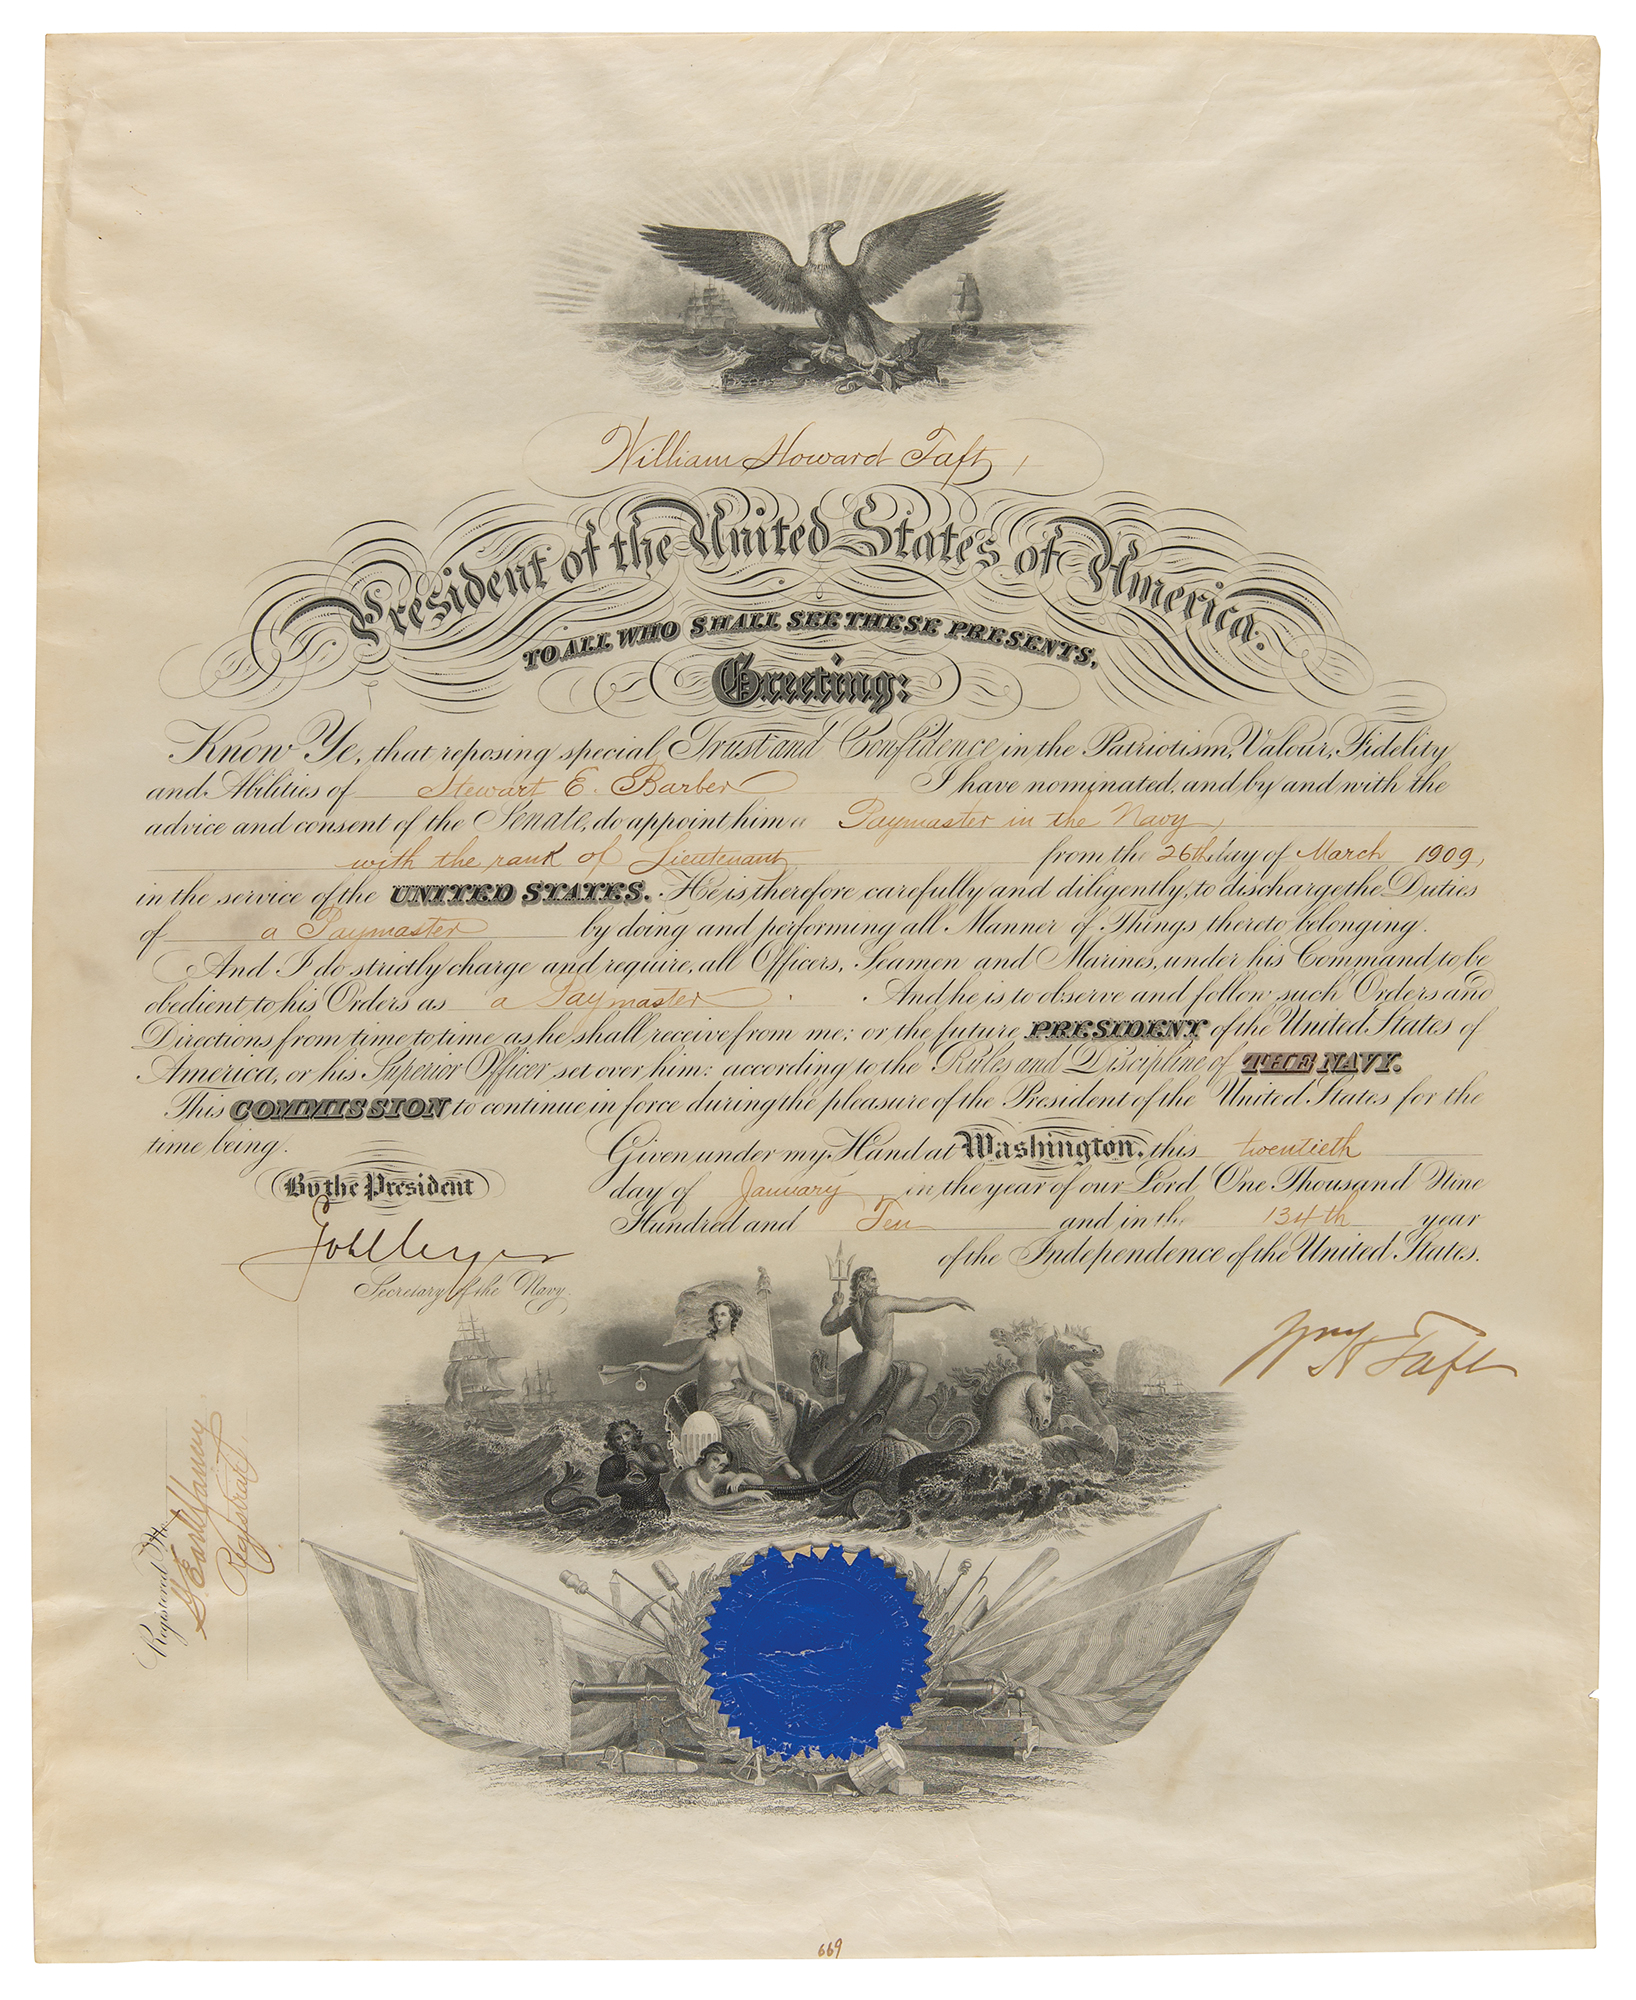 William Howard Taft,
President of the United States of America.
TO ALL WHO SHALL SEE THESE PRESENTS,
Greeting:
Know Ye, that reposing special Trust and Confidence in the Patriotism, Valour, Fidelity
and Abilities of Stewart E. Barber I have nominated, and by and with the
advice and consent of the Senate, do appoint him a Paymaster in the Navy,
with the rank of Lieutenant from the 26th day of March 1909,
in the service of the UNITED STATES. He is therefore carefully and diligently to discharge the Duties
of a Paymaster by doing and performing all Manner of Things thereto belonging.
And I do strictly charge and require, all Officers, Seamen and Marines, under his Command to be
obedient to his Orders as a Paymaster. And he is to observe and follow such Orders and
Directions from time to time as he shall receive from me; or the future PRESIDENT of the United States of
America, or his Superior Officer set over him: according to the Rules and Discipline of THE NAVY.
This COMMISSION to continue in force during the pleasure of the President of the United States for the
time being.
Given under my Hand at Washington, this twentieth
day of January in the year of our Lord One Thousand Nine
Hundred and Ten and in the 134th year
of the Independence of the United States.
By the President
Secretary of the Navy.
Wm H Taft
Registered No.
Registrar.
669